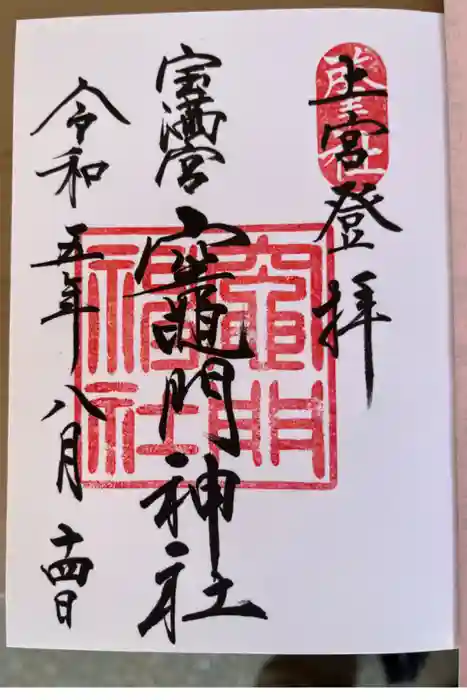 上宮登拝
宝満宮
竈門神社
令和五年八月十四日
竈門
神社